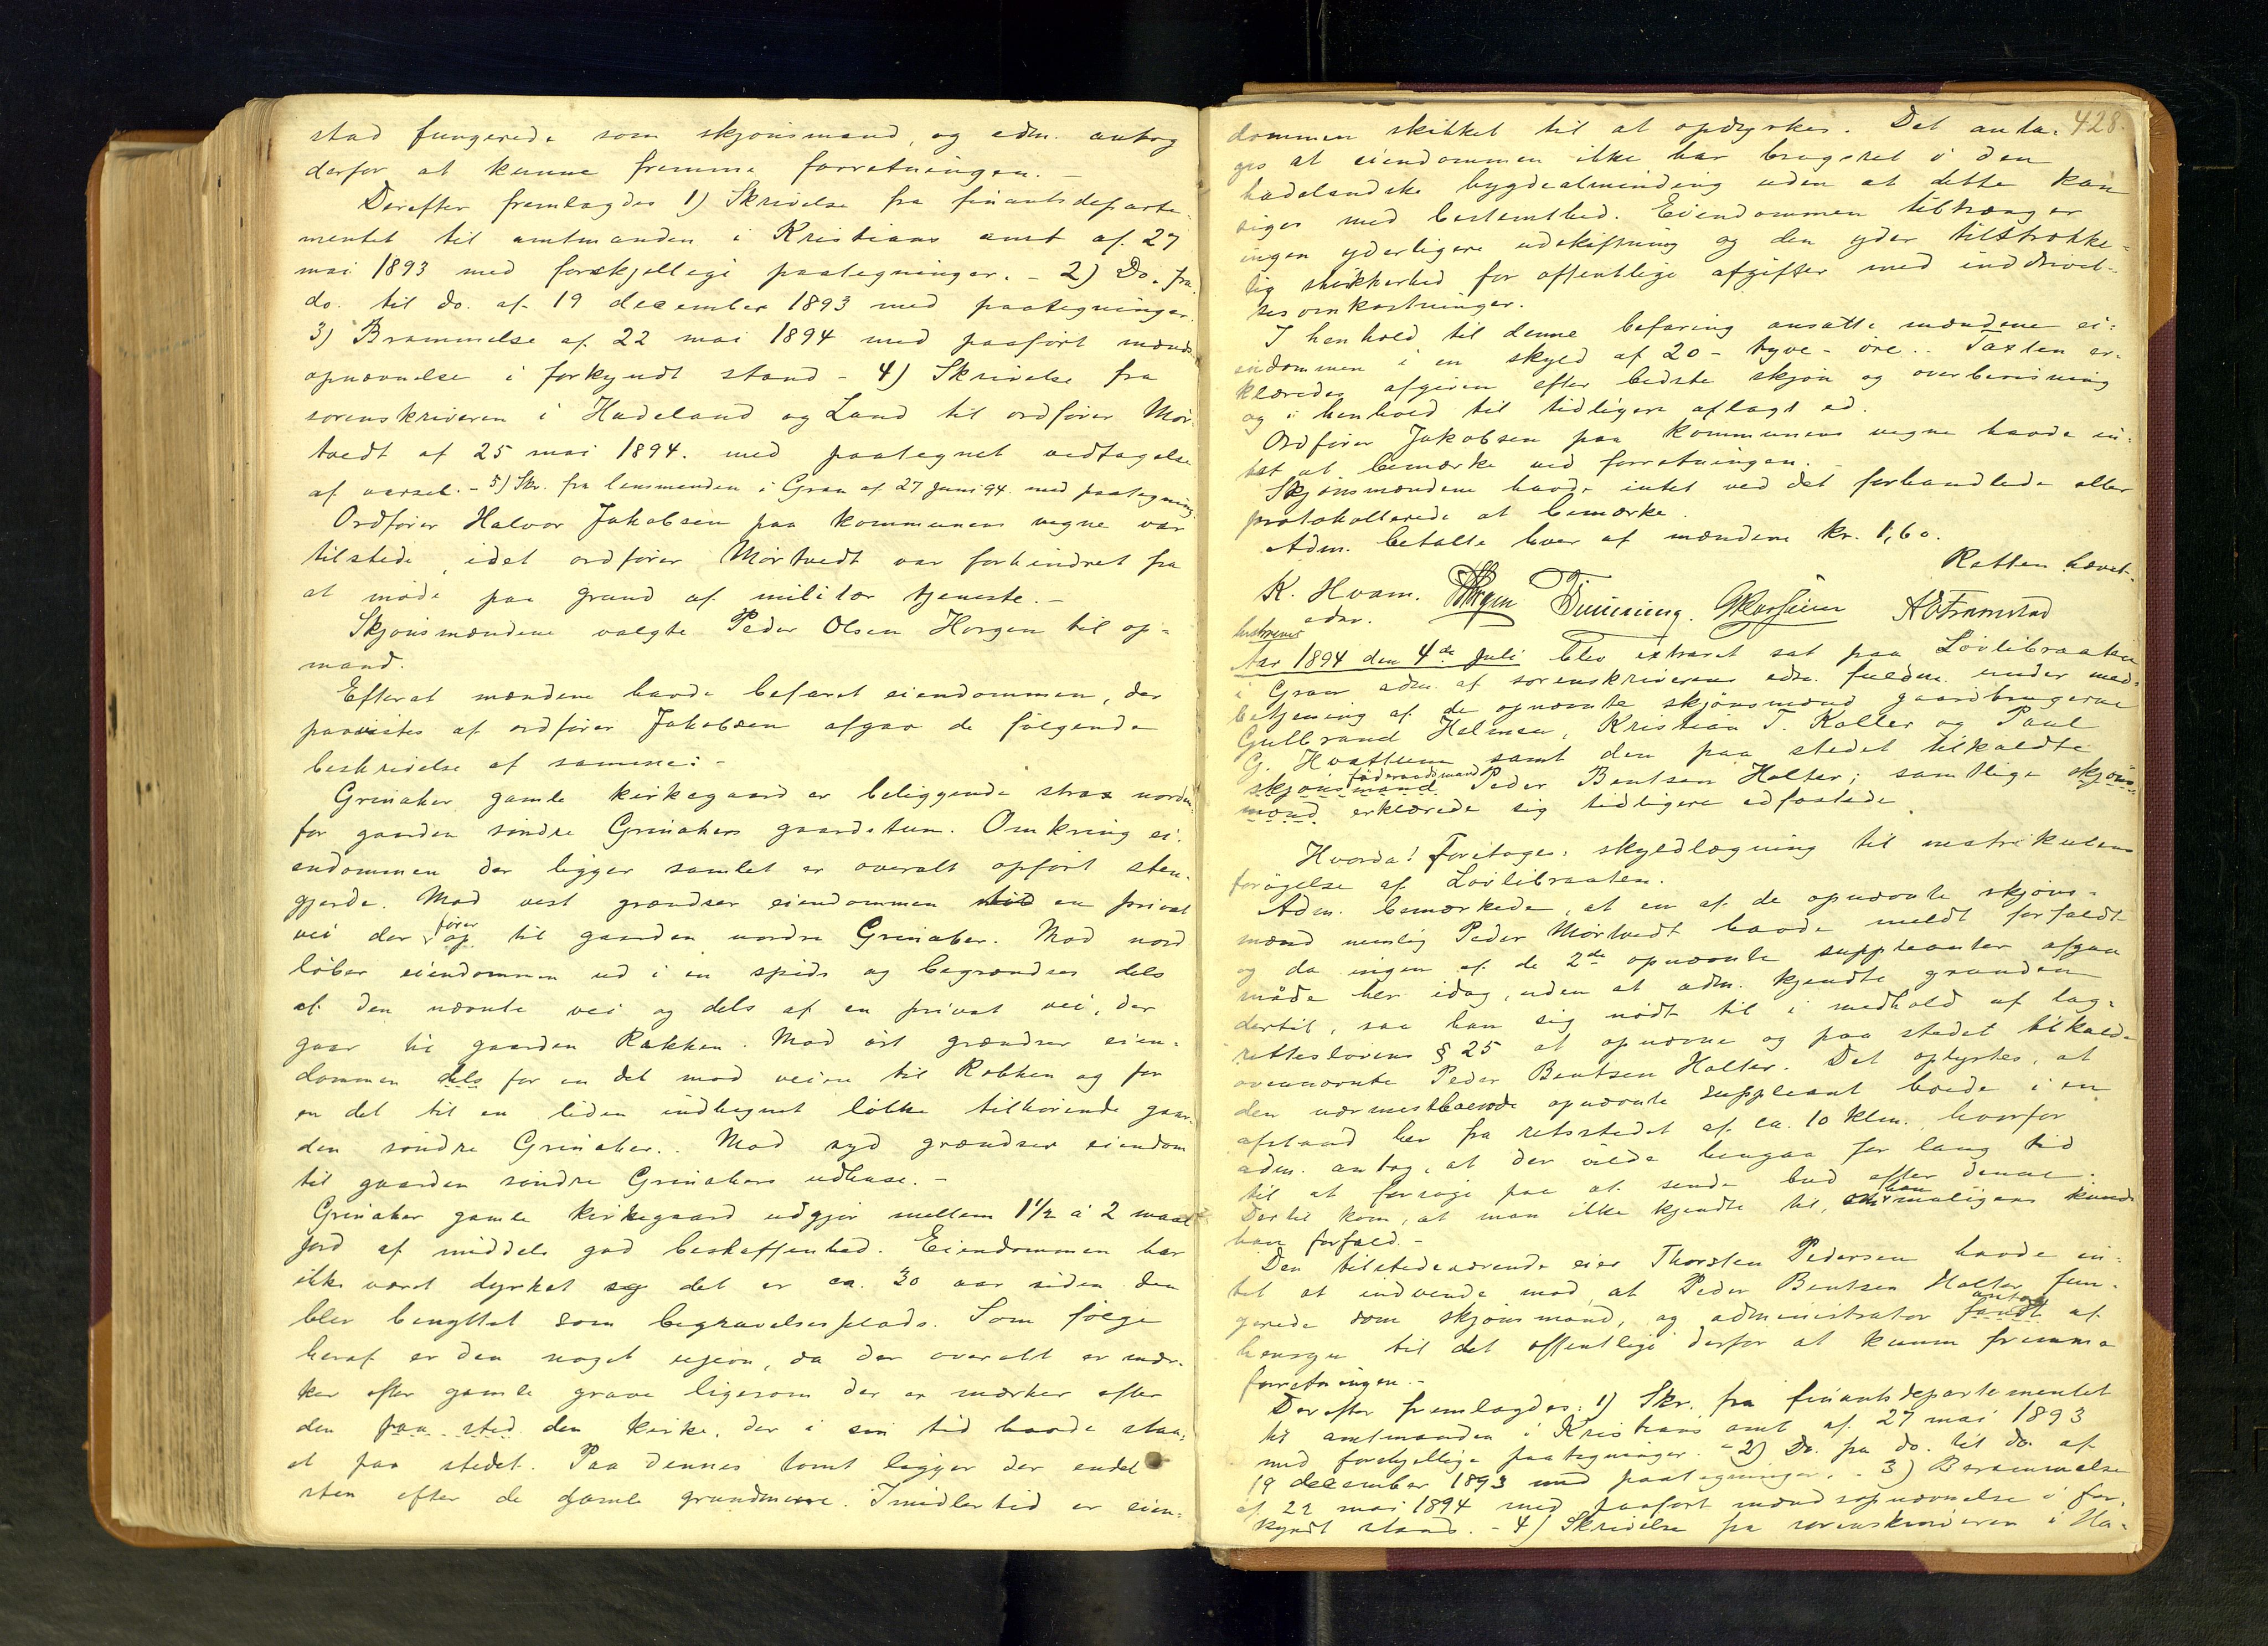 stad fungerede som skjønsmand, og adm. antog
derfor at kunne fremme forretningen. –
Derefter fremlagdes 1) Skrivelse fra finantsdeparte-
mentet til amtmanden i Kristians amt af 27
mai 1893 med forskjellige paategninger. – 2) Do. fra
do. til do. af 19 december 1893 med paategninger.
3) Brammelse af 22 mai 1894 med paaført mænds-
opnævnelse i forkyndt stand – 4) Skrivelse fra
sorenskriveren i Hadeland og Land til ordfører Mør-
tvedt af 25 mai 1894. med paategnet vedtagelse
af varsel. – 5) Skr. fra lensmanden i Gran af 27 juni 94 med paategning.
Ordfører Halvor Jakobsen paa kommunens vegne var
tilstede, idet ordfører Mørtvedt var forhindret fra
at møde paa grund af militær tjeneste. –
Skjønsmændene valgte Peder Olsen Horgen til op-
mand.
Efterat mændene havde befaret eiendommen, der
paavistes af ordfører Jakobsen afgav de følgende
beskrivelse af samme: –
Grinaker gamle kirkegaard er beliggende strax norden-
for gaarden søndre Grinakers gaardstun. Omkring ei-
endommen der ligger samlet er overalt opført sten-
gjerde. Mod vest grændser eiendommen til en privat
vei der fører op til gaarden nordre Grinaker. Mod nord
løber eiendommen ud i en spids og begrændses dels
af den nævnte vei og dels af en privat vei, der
gaar til gaarden Rækken. Mod øst grændser eien-
dommen dels for en del mod veien til Rækken og for
en del til en liden indhegnet løkke tilhørende gaar-
den søndre Grinaker. . Mod syd grændser eiendom
til gaarden søndre Grinakers udhuse. –
Grinaker gamle kirkegaard udgjør mellem 1½ à 2 maal
jord af middels god beskaffenhed. Eiendommen har
ikke været dyrket og det er ca. 30 aar siden den
blev benyttet som begravelsesplads. Som følge
heraf er den noget ujevn, da der overalt er mær-
ker efter gamle grave ligesom der er mærker efter
den paa sted den kirke, der i sin tid havde staa-
et paa stedet. Paa dennes tomt ligger der endel
sten efter de gamle grundmure. Imidlertid er eien-
428.
dommen skikket til at opdyrkes. Det anta-
ges at eiendommen ikke har brugsret i den
hadelandske bygdealminding uden at dette kan
siges med bestemthed. Eiendommen tiltrænger
ingen yderligere udskiftning og den yder tilstrække-
lig sikkerhed for offentlige afgifter med inddrivel-
sesomkostninger.
I henhold til denne befaring ansatte mændene ei-
endommen i en skyld af 20 – tyve – øre. . Taxten er-
klæredes afgiven efter bedste skjøn og overbevisning
og i henhold til tidligere aflagt ed.
Ordfører Jakobsen paa kommunens vegne havde in-
tet at bemærke ved forretningen. –
Skjønsmændene havde intet ved det forhandlede eller
protokollerede at bemærke.
Adm. betalte hver af mændene kr. 1,60.
Retten hævet.
K. Hvam.
edsv.
Aar 1894 den 4de Juli blev extraret sat paa Løvlibraaten
i Gran adm. af sorenskriverens edsv. fuldm. under med-
betjening af de opnævnte skjønsmænd gaardbrugerne
Gulbrand Helmen, Kristian T. Koller og Paul
G. Hvattum samt den paa stedet tilkaldte
skjønsmand føderaadsmand Peder Bentsen Holter; samtlige skjøns-
mænd erklærede sig tidligere edfæstede.
Hvorda! Foretoges: skyldlægning til matrikulens
forøgelse af Løvlibraaten.
Adm. bemærkede, at en af de opnævnte skjøns-
mænd nemlig Peder Mørtvedt havde meldt forfald
og da ingen af de 2de opnævnte suppleanter afgav
møde her idag, uden at adm. kjendte grunden
dertil, saa han sig nødt til i medhold af lag-
retteslovens § 25 at opnævne og paa stedet tilkalde
ovennævnte Peder Bentsen Holter. Det oplystes, at
den nærmestboende opnævnte suppleant boede i en
afstand her fra retsstedet af ca. 10 klm., hvorfor
adm. antog, at der vilde hengaa for lang tid
til at forsøge paa at sende bud efter denne.
Dertil kom, at man ikke kjendte til, om han muligens kunde
have forfald. –
Den tilstedeværende eier Thorsten Pedersen havde in-
tet at indvende mod, at Peder Bentsen Holter fun-
gerede som skjønsmand, og administrator fandt antog af
hensyn til det offentlige derfor at kunne fremme
forretningen. –
Derefter fremlagdes: 1) Skr. fra finantsdepartementet
til amtmanden i Kristians amt af 27 mai 1893
med forskjellige paategninger. – 2) Do. fra do. til do. af
19 december 1893 med paategninger. – 3) Berammelse
af 22 mai 1894 med paaført mændsopnævnelse i for-
kyndt stand. – 4) Skrivelse fra sorenskriveren i Ha-